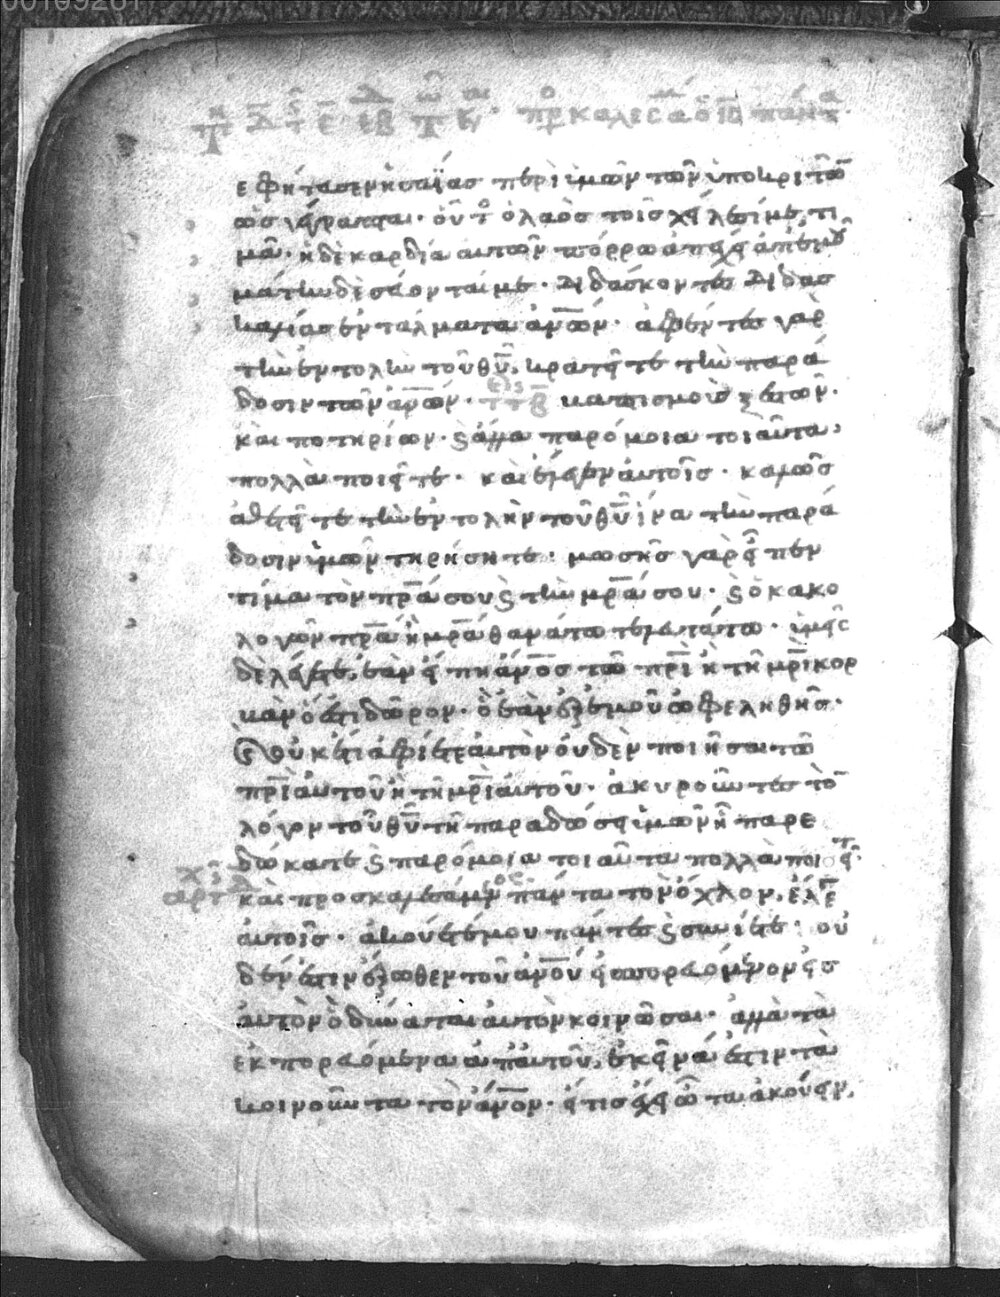 εφήτευσεν ἡσαΐας περὶ ἡμῶν τῶν ὑποκριτῶ
ὡς γέγραπται· οὗτο ὁ λαὸς τοῖς χείλεσί με τι
μᾶ· ἡ δὲ καρδία αυτῶν πόρρω ἀπέχει ἀπ' ἐμοῦ
μάτην δὲ σέβονταί με· διδάσκοντες διδασ
καλίας ἐντάλματα ἀνων· ἀφέντες γὰρ
τὴν ἐντολὴν τοῦ θυ, κρατεῖτε τὴν παρά
δοσιν τῶν ἀνων· βαπτισμοὺς ξεστῶν·
καὶ ποτηρίων· ϗ ἄλλα παρόμοια τοιαῦτα,
πολλὰ ποιεῖτε· καὶ ἔλεγεν ἀυτοῖς· καλῶς
ἀθετεῖτε τὴν ἐντολὴν τοῦ θυ ἵνα τὴν παρά
δοσιν ὑμῶν τηρήσητε· μωσῆς γὰρ εἶπεν
τίμα τὸν πρα σου ϗ τὴν μρα σου· ϗ ὁ κακο
λογῶν πρα ἢ μρα θανάτω τελευτάτω· ὑμεῖς
δὲ λέγετε, ἐὰν εἴπη ἀνος τῶ πρὶ ἢ τῆ μρὶ κορ
καν ὅ ἐστι δῶρον· ὃ ἐὰν ἐξ ἐμοῦ ὠφεληθῆς·
ϗ οὐκέτι ἀφίετε ἀυτὸν ὀυδὲν ποιῆσαι τῶ
πρὶ ἀυτοῦ ἢ τῆ μρὶ ἀυτοῦ· ἀκυροῦντες τὸ
λόγον τοῦ θυ τῆ παραδόσει ὑμῶν ἧ παρε
δώκατε ϗ παρόμοια τοιαῦτα πολλὰ ποιεῖτ·
καὶ προσκαλεσάμενος πάντα τὸν ὄχλον, ἔλε
ἀυτοῖς· ἀκούετέ μου πάντες ϗ συνίετε· οὐ
δέν ἐστιν ἔξωθεν τοῦ ἀνου εἰσπορευόμενον εἰς
ἀυτὸν ὃ δύναται ἀυτὸν κοινῶσαι· ἀλλὰ τὰ
ἐκπορευόμενα ἀπ' ἀυτοῦ, ἐκεῖνά ἐστιν τὰ
κοινοῦντα τὸν ἄνον· εἴ τις ἔχει ὦτα ἀκούειν,